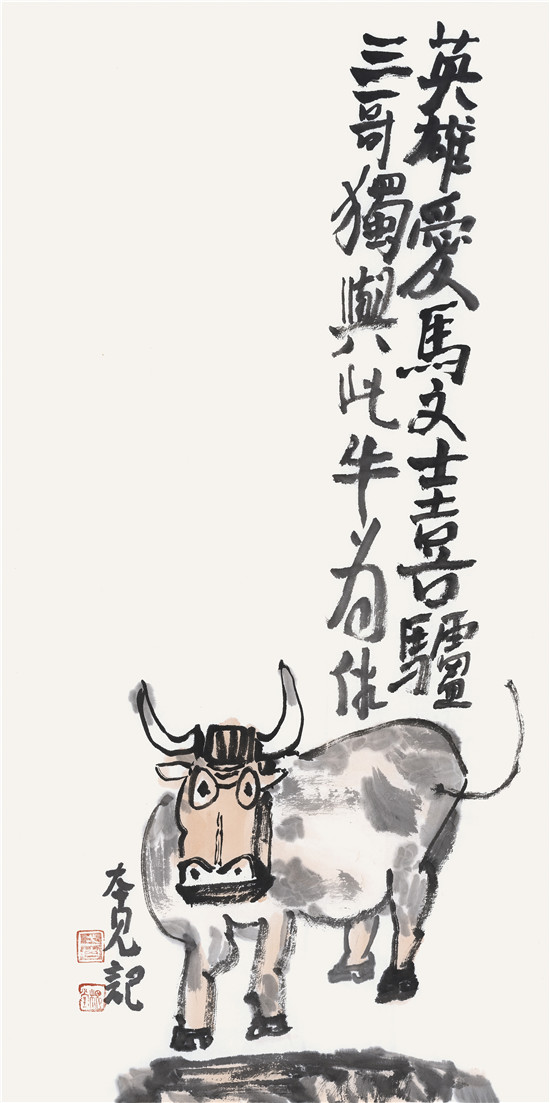 英雄愛馬文士喜驢
三哥獨與此牛為伴
本见記